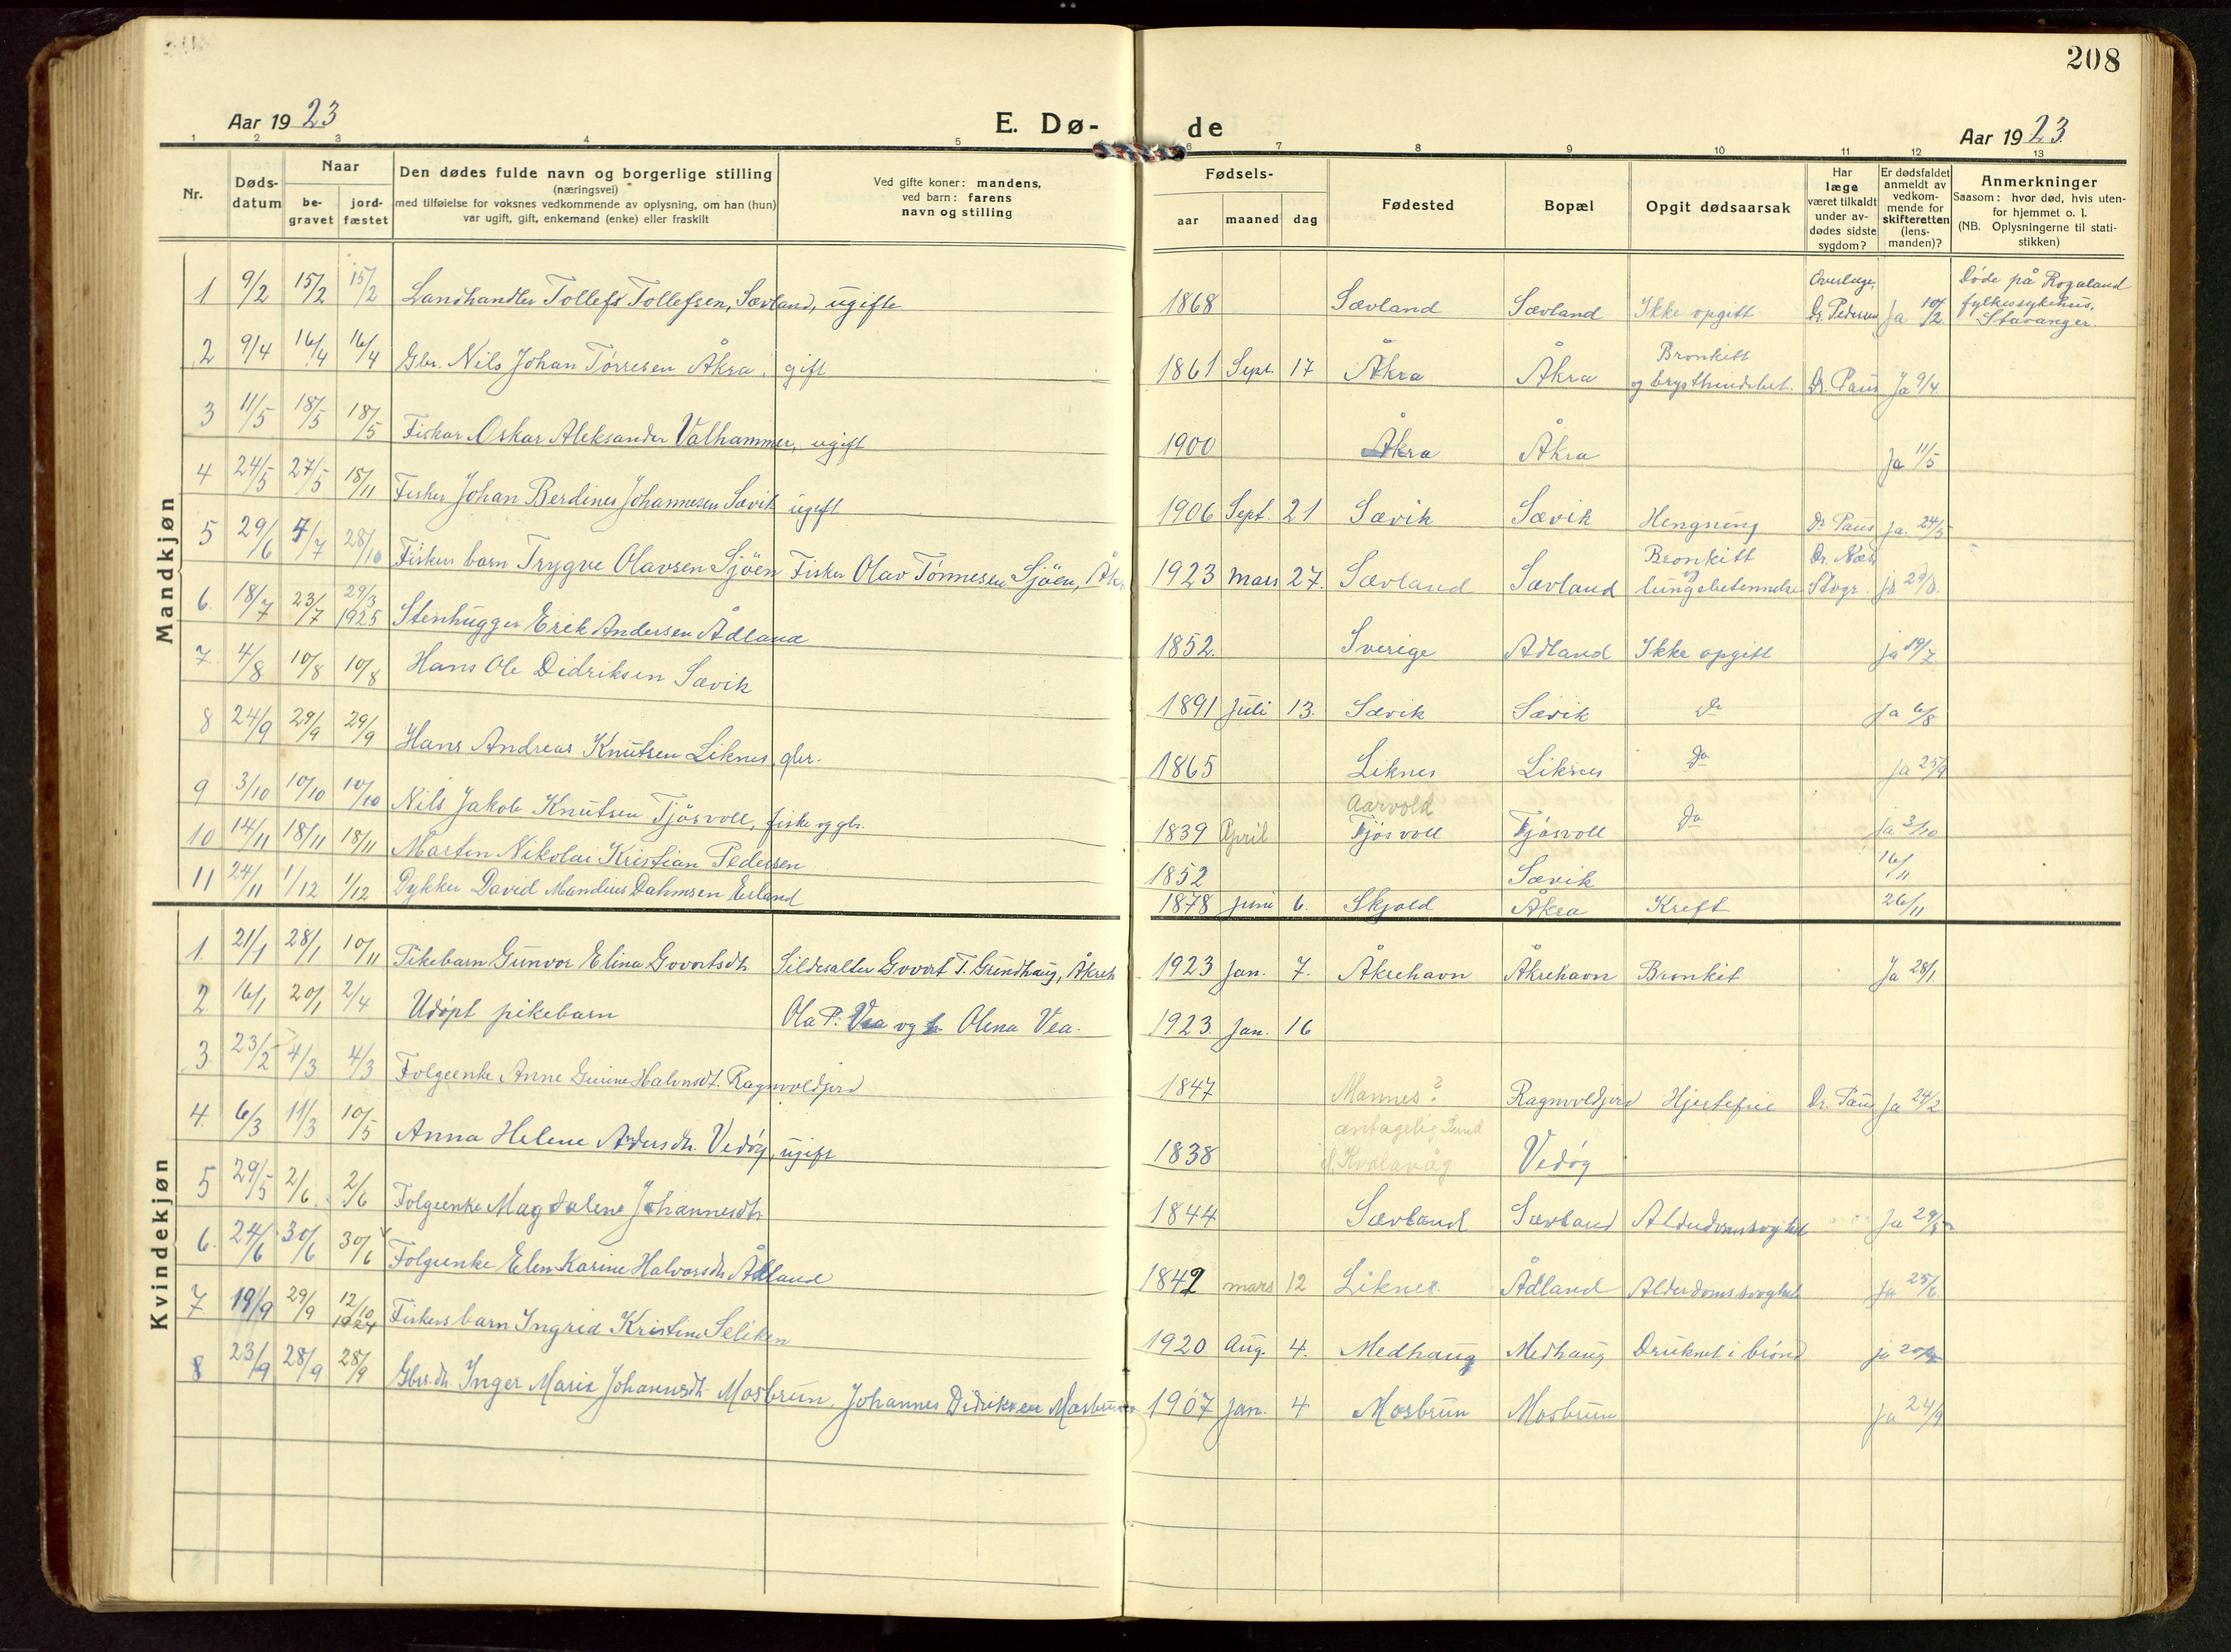 208
Aar 1923
E. Dø-
de
Aar 1923
1 2 3 4 5 6 7 8 9 10 11 12 13
Nr.
Døds-
datum
Naar
be-
gravet
jord-
fæstet
Den dødes fulde navn og borgerlige stilling
(næringsvei)
med tilføielse for voksnes vedkommende av oplysning, om han (hun)
var ugift, gift, enkemand (enke) eller fraskilt
Ved gifte koner: mandens,
ved barn: farens
navn og stilling
Fødsels-
aar
maaned
dag
Fødested
Bopæl
Opgit dødsaarsak
Har
læge
været tilkaldt
under av-
dødes sidste
sygdom?
Er dødsfaldet
anmeldt av
vedkom-
mende for
skifteretten
(lens-
manden)?
Anmerkninger
Saasom: hvor død, hvis uten-
for hjemmet o. l.
(NB. Oplysningerne til stati-
stikken)
Mandkjøn
1 9/2 15/2 15/2 Landhandler Tollefs Tollefsen, Sævland, ugifte 1868 Sævland Sævland Ikke opgitt Overlæge, Dr. Pedersen Ja 10/2 Døde på Rogaland fylkessykehus, Stavanger.
2 9/4 16/4 16/4 Gbr. Nils Johan Tørresen Åkra, gift 1861 Sept. 17 Åkra Åkra Bronkitt og brysthindebet. Dr. Paus Ja 9/4
3 11/5 18/5 18/5 Fisker Oskar Aleksander Valhammer, ugift 1900 Åkra Åkra Ja 11/5
4 24/5 27/5 18/11 Fisker Johan Berdines Johannesen Sævik ugift 1906 Sept. 21 Sævik Sævik Hengning Dr Paus Ja. 24/5
5 29/6 4/7 28/10 Fiskers barn Trygve Olavsen Sjöen Fisker Olav Tønnesen Sjöen, Åkr 1923 mars 27. Sævland Sævland Bronkitt og lungebetennelse Dr. Næs Stvgr. ja
6. 18/7 23/7 29/3 1925 Stenhugger Erik Andersen Ådland 1852. Sverige Ådland Ikke opgitt ja 19/7
7. 4/8 10/8 10/8 Hans Ole Didriksen Sævik 1891 Juli 13. Sævik Sævik do Ja 6/8
8 24/9 29/9 29/9 Hans Andreas Knutsen Liknes, gbr. 1865 Liknes Liknes do Ja 25/9
9 3/10 10/10 10/10 Nils Jakob Knutsen Tjøsvoll, fisker og gbr. 1839 April Aarvold Tjøsvoll Tjøsvoll do Ja 3/10
10 14/11 18/11 18/11 Martin Nikolai Kristian Pedersen 1852 Sævik 16/11
11 24/11 1/12 1/12 Dykker David Mandius Dahmsen Esland 1878 juni 6. Skjold Åkra Kreft 26/11
Kvindekjøn
1. 21/1 28/1 10/11 Pikebarn Gunvor Elina Govertsdtr. Sildesalter Govert T. Grindhaug, Åkreh 1923 Jan. 7. Åkrehavn Åkrehavn Bronkit Ja 28/1.
2. 16/1 20/1 2/4 Udøpt pikebarn Ola P. Vea og h. Olena Vea. 1923. Jan. 16
3. 23/2 4/3 4/3 Folgeenke Anne Gurine Halvnsdt. Ragnvoldjord 1847 Mannes? Ragnvoldjord Hjertefeil Dr. Paus Ja 24/2
4. 6/3 11/3 10/5 Anna Helene Andersdtr. Vedøy, ugift 1838 antagelig Sund el. Kvalavåg Vedøy
5 29/5 2/6. 2/6 Folgeenke Magdalene Johannesdtr 1844 Sævland Sævland Alderdomssvaghet Ja 29/5
6. 24/6 30/6 30/6 Folgeenke Elen Karine Halvorsdtr Ådland 1842 mars 12 Liknes. Ådland Alderdomssvaghet Ja 25/6.
7. 19/9 29/9 12/10 1924 Fiskers barn Ingrid Kristine Seliken 1920 Aug. 4. Medhaug Medhaug Druknet i brønd ja
8 23/9 28/9 28/9 Gbr. dtr. Inger Marie Johannsdtr. Mosbrun. Johannes Didriksen Mosbrun 1907 Jan. 4 Mosbrun Mosbrun Ja 24/9